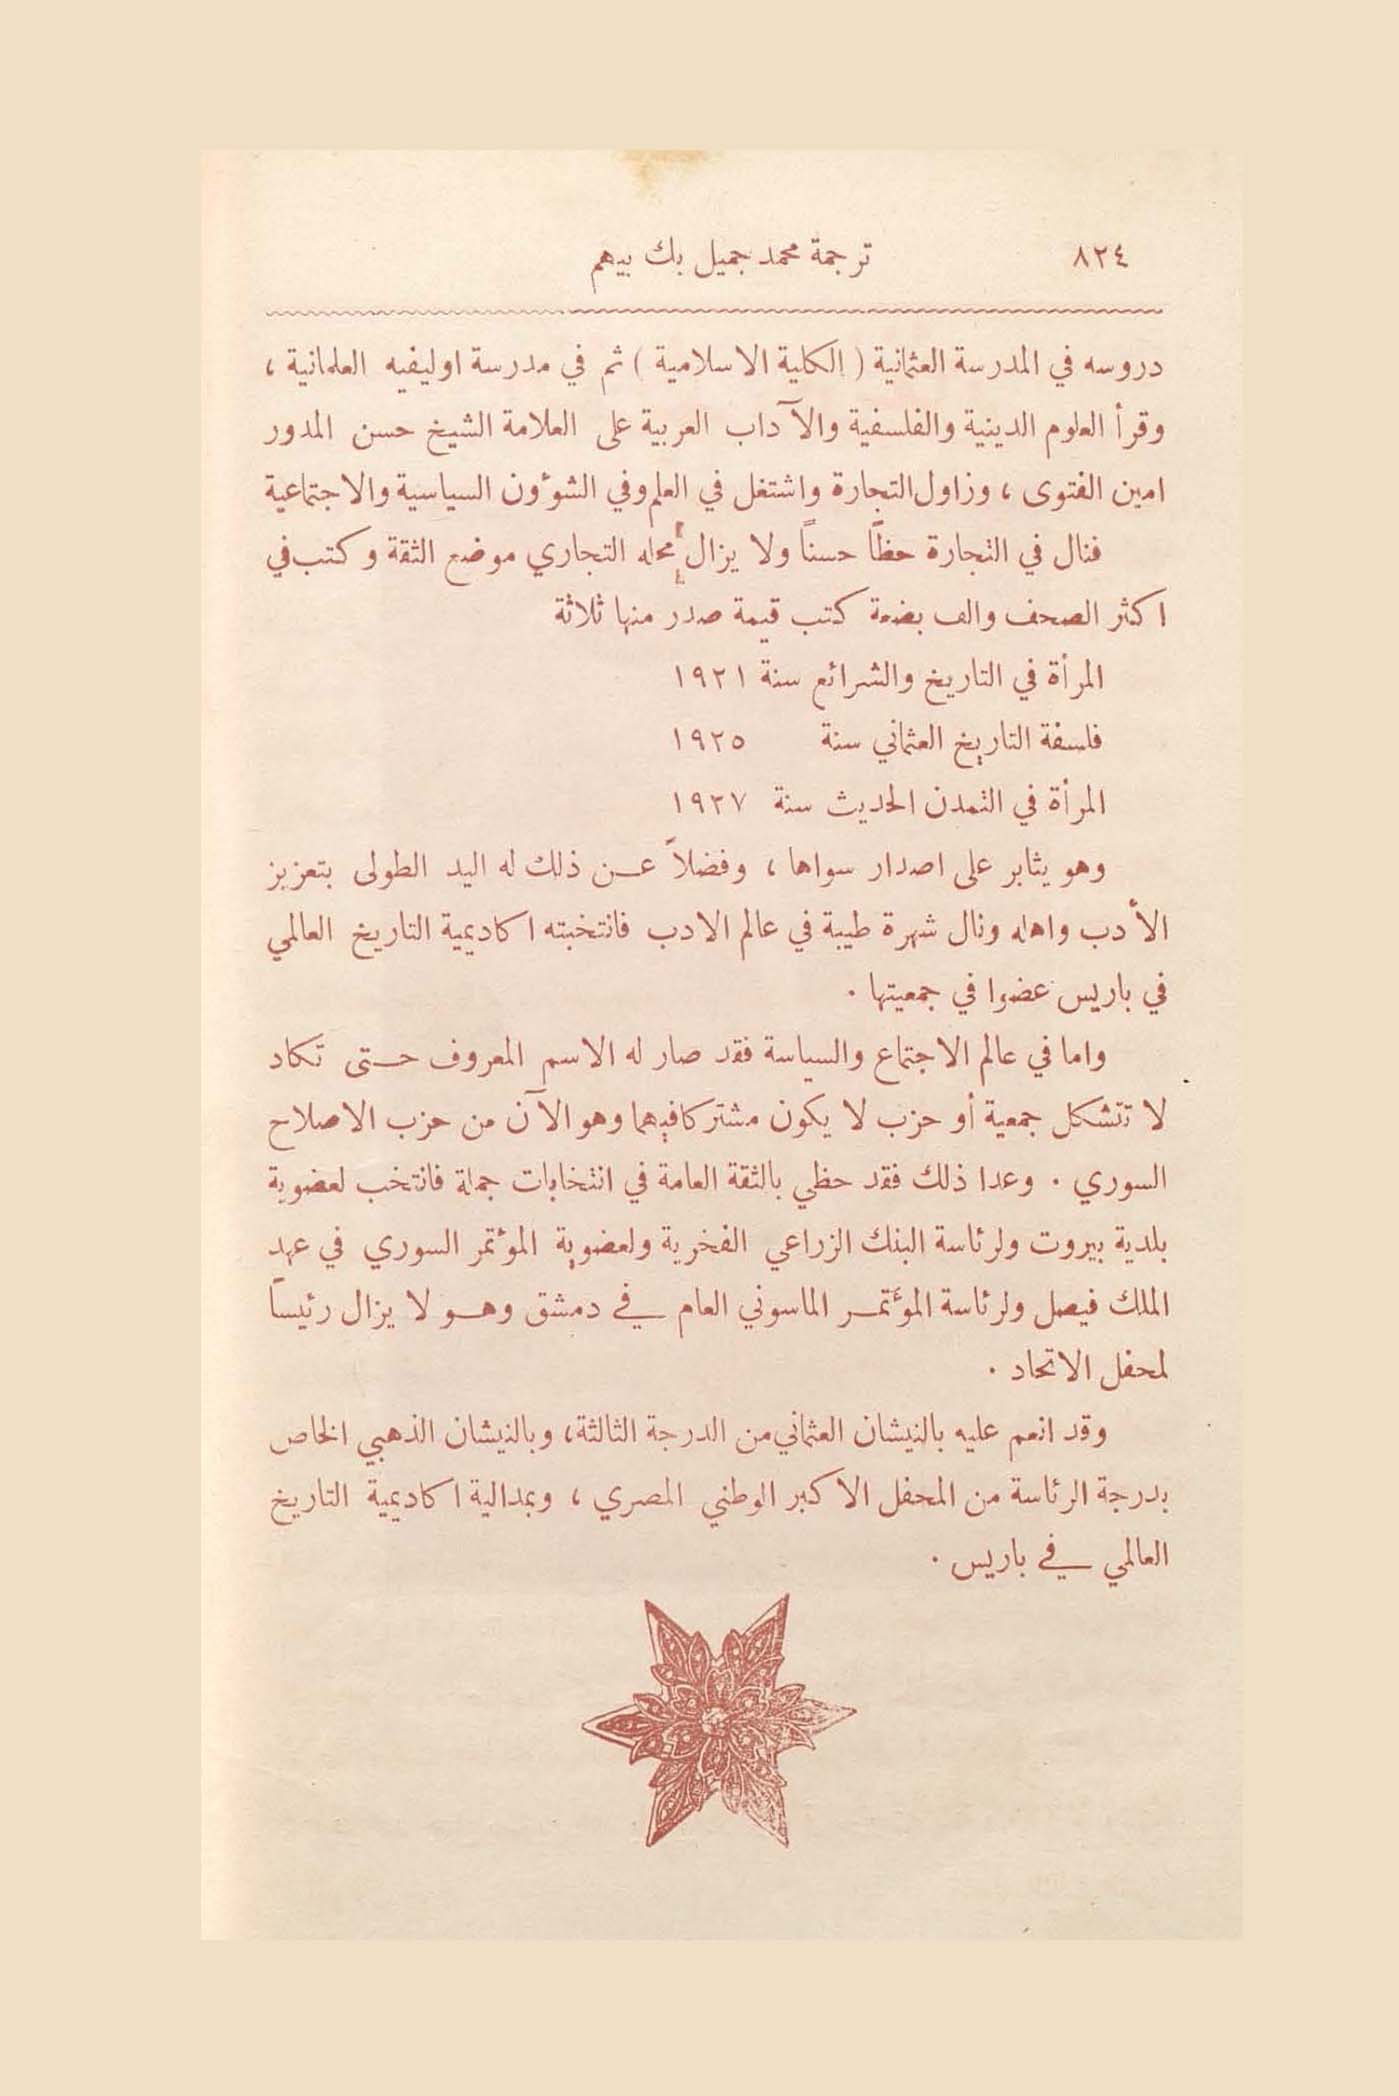 ٨٢٤ ترجمة محمد جميل بك بيهم
دروسه في المدرسة العثمانية ( الكلية الاسلامية ) ثم في مدرسة اوليفيه العلمانية ،
وقرأ العلوم الدينية والفلسفية والآداب العربية على العلامة الشيخ حسن المدور
امين الفتوى ، وزاول التجارة واشتغل في العلم وفي الشؤون السياسية والاجتماعية
فنال في التجارة حظاً حسناً ولا يزال محله التجاري موضع الثقة وكتب في
اكثر الصحف والف بضعة كتب قيمة صدر منها ثلاثة
المرأة في التاريخ والشرائع سنة ١٩٢١
فلسفة التاريخ العثماني سنة ١٩٢٥
المرأة في التمدن الحديث سنة ١٩٢٧
وهو يثابر على اصدار سواها ، وفضلاً عن ذلك له اليد الطولى بتعزيز
الأدب واهله ونال شهرة طيبة في عالم الادب فانتخبته اكاديمية التاريخ العالمي
في باريس عضوا في جمعيتها .
واما في عالم الاجتماع والسياسة فقد صار له الاسم المعروف حتى تكاد
لا تتشكل جمعية أو حزب لا يكون مشتركا فيهما وهو الآن من حزب الاصلاح
السوري . وعدا ذلك فقد حظي بالثقة العامة في انتخابات جملة فانتخب لعضوية
بلدية بيروت ولرئاسة البنك الزراعي الفخرية ولعضوية المؤتمر السوري في عهد
الملك فيصل ولرئاسة المؤتمر الماسوني العام في دمشق وهو لا يزال رئيساً
لمحفل الاتحاد .
وقد انعم عليه بالنيشان العثماني من الدرجة الثالثة ، وبالنيشان الذهبي الخاص
بدرجة الرئاسة من المحفل الاكبر الوطني المصري ، وبمدالية اكاديمية التاريخ
العالمي في باريس .